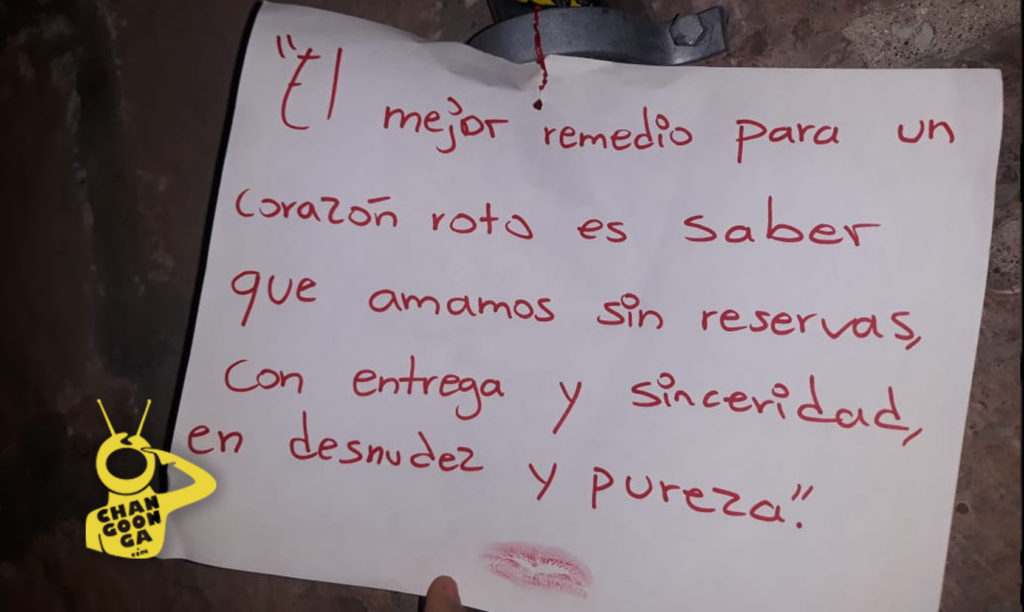 "El mejor remedio para un
corazón roto es saber
que amamos sin reservas,
con entrega y sinceridad,
en desnudez y pureza".
CHAN
GOON
GA
.com